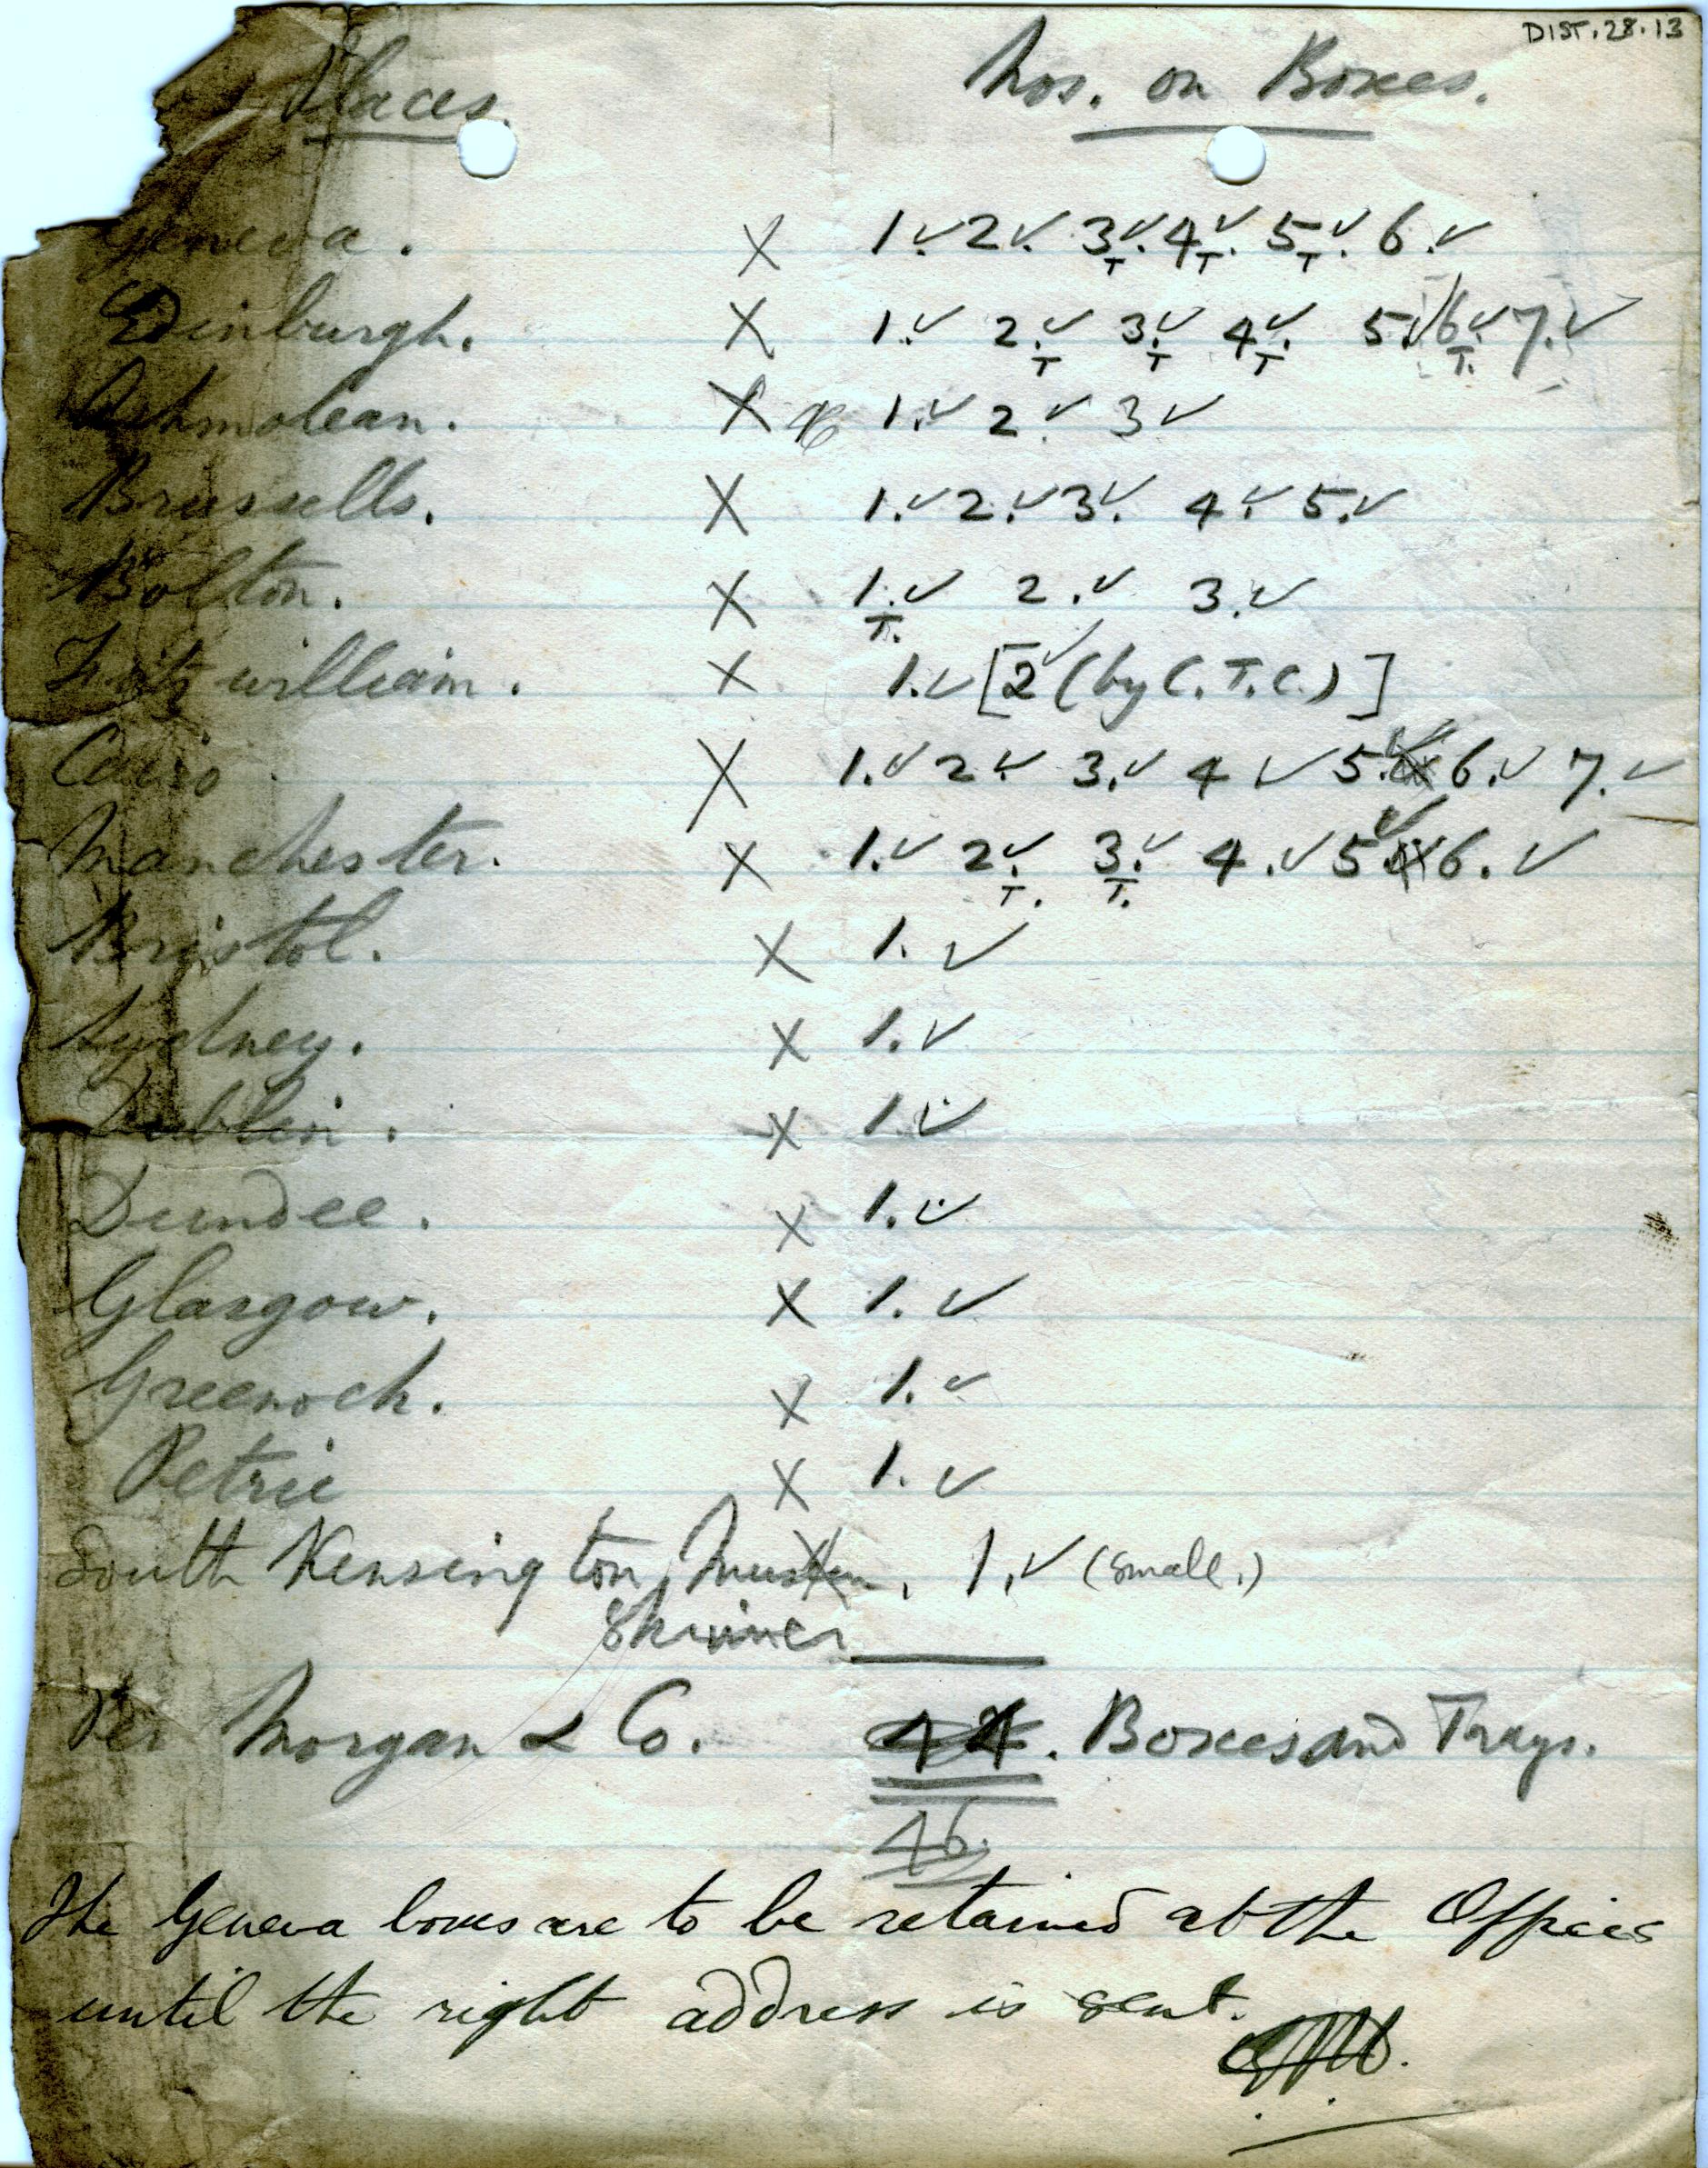 DIST.28.13
Places. Nos. on Boxes.
Geneva. X 1.✓ 2✓. 3✓. T 4✓. T 5✓. T 6.✓
Edinburgh. X 1.✓ 2.✓ T 3.✓ T 4.✓ T 5.✓ 6.✓ T. 7.✓
Ashmolean. X 1.✓ 2.✓ 3✓
Brussells. X 1.✓ 2.✓ 3.✓ 4.✓ 5.✓
Bolton. X 1.✓ T. 2.✓ 3.✓
Fitzwilliam. X 1.✓ [2✓ (by C.T.C.)]
Cairo X 1.✓ 2.✓ 3.✓ 4 ✓ 5.✓ 6.✓ 7.✓
Manchester. X 1.✓ 2.✓ T. 3.✓ T. 4.✓ 5✓ 6.✓
Bristol. X 1.✓
Sydney. X 1.✓
Dublin. X 1.✓
Dundee. X 1.✓
Glasgow. X 1.✓
Greenock. X 1.✓
Petrie X 1.✓
South Kensington Museum. X 1.✓ (small.)
Skinner
Per Morgan & Co. 44. Boxes and Trays.
46.
The Geneva boxes are to be retained at the Offices
until the right address is sent.